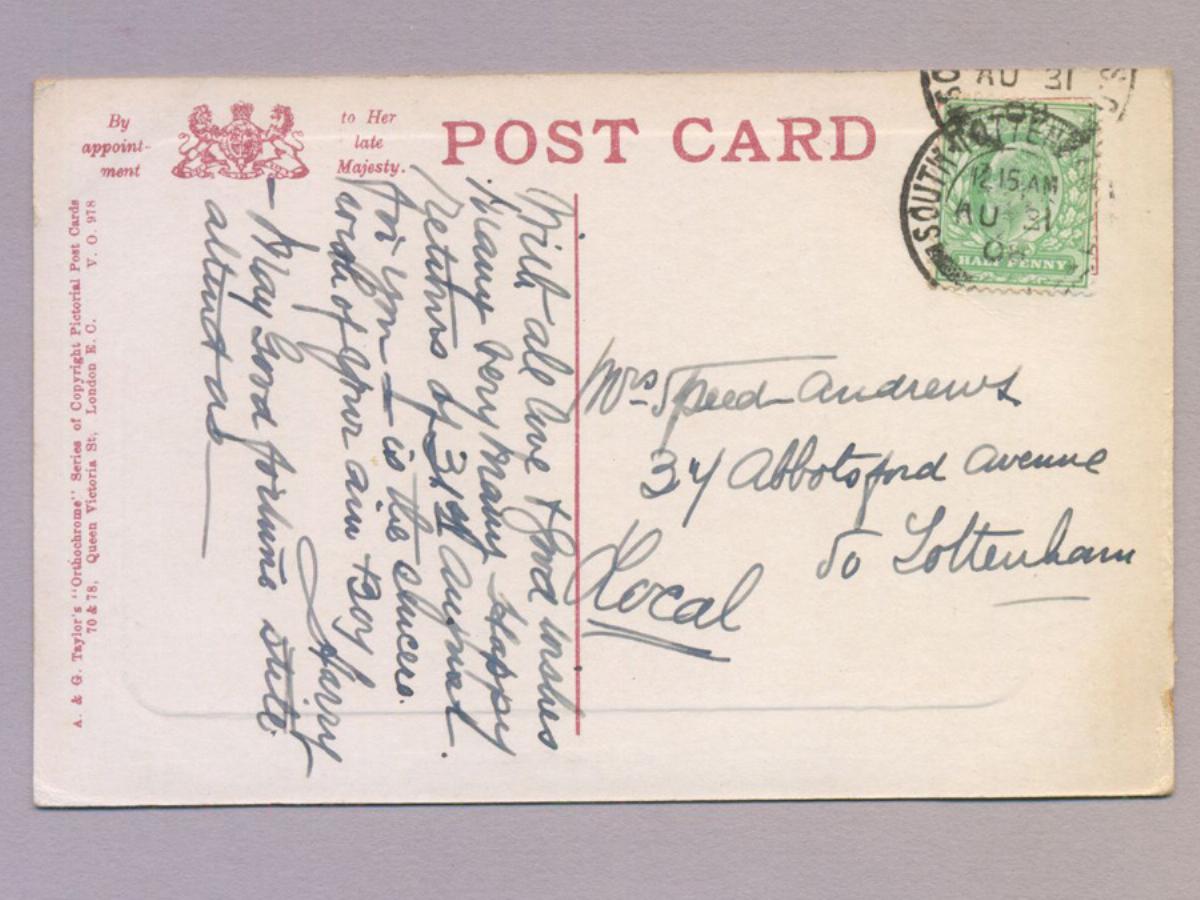 By
appoint-
ment
to Her
late
Majesty.
POST CARD
AU 31
08
SOUTH TOTTEN
12.15 AM
AU 31
08
HALF PENNY
With all love & Good wishes
Many very Many Happy
Returns of 31st August.
for you — is the sincere.
wish of your ain Boy
Harry
— May Good fortune still
attend us
Mrs Speed Andrews
34 Abbotsford Avenue
So Tottenham
Local
A. & G. Taylor's "Orthochrome" Series of Copyright Pictorial Post Cards
70 & 78, Queen Victoria St, London E. C. V. O. 978